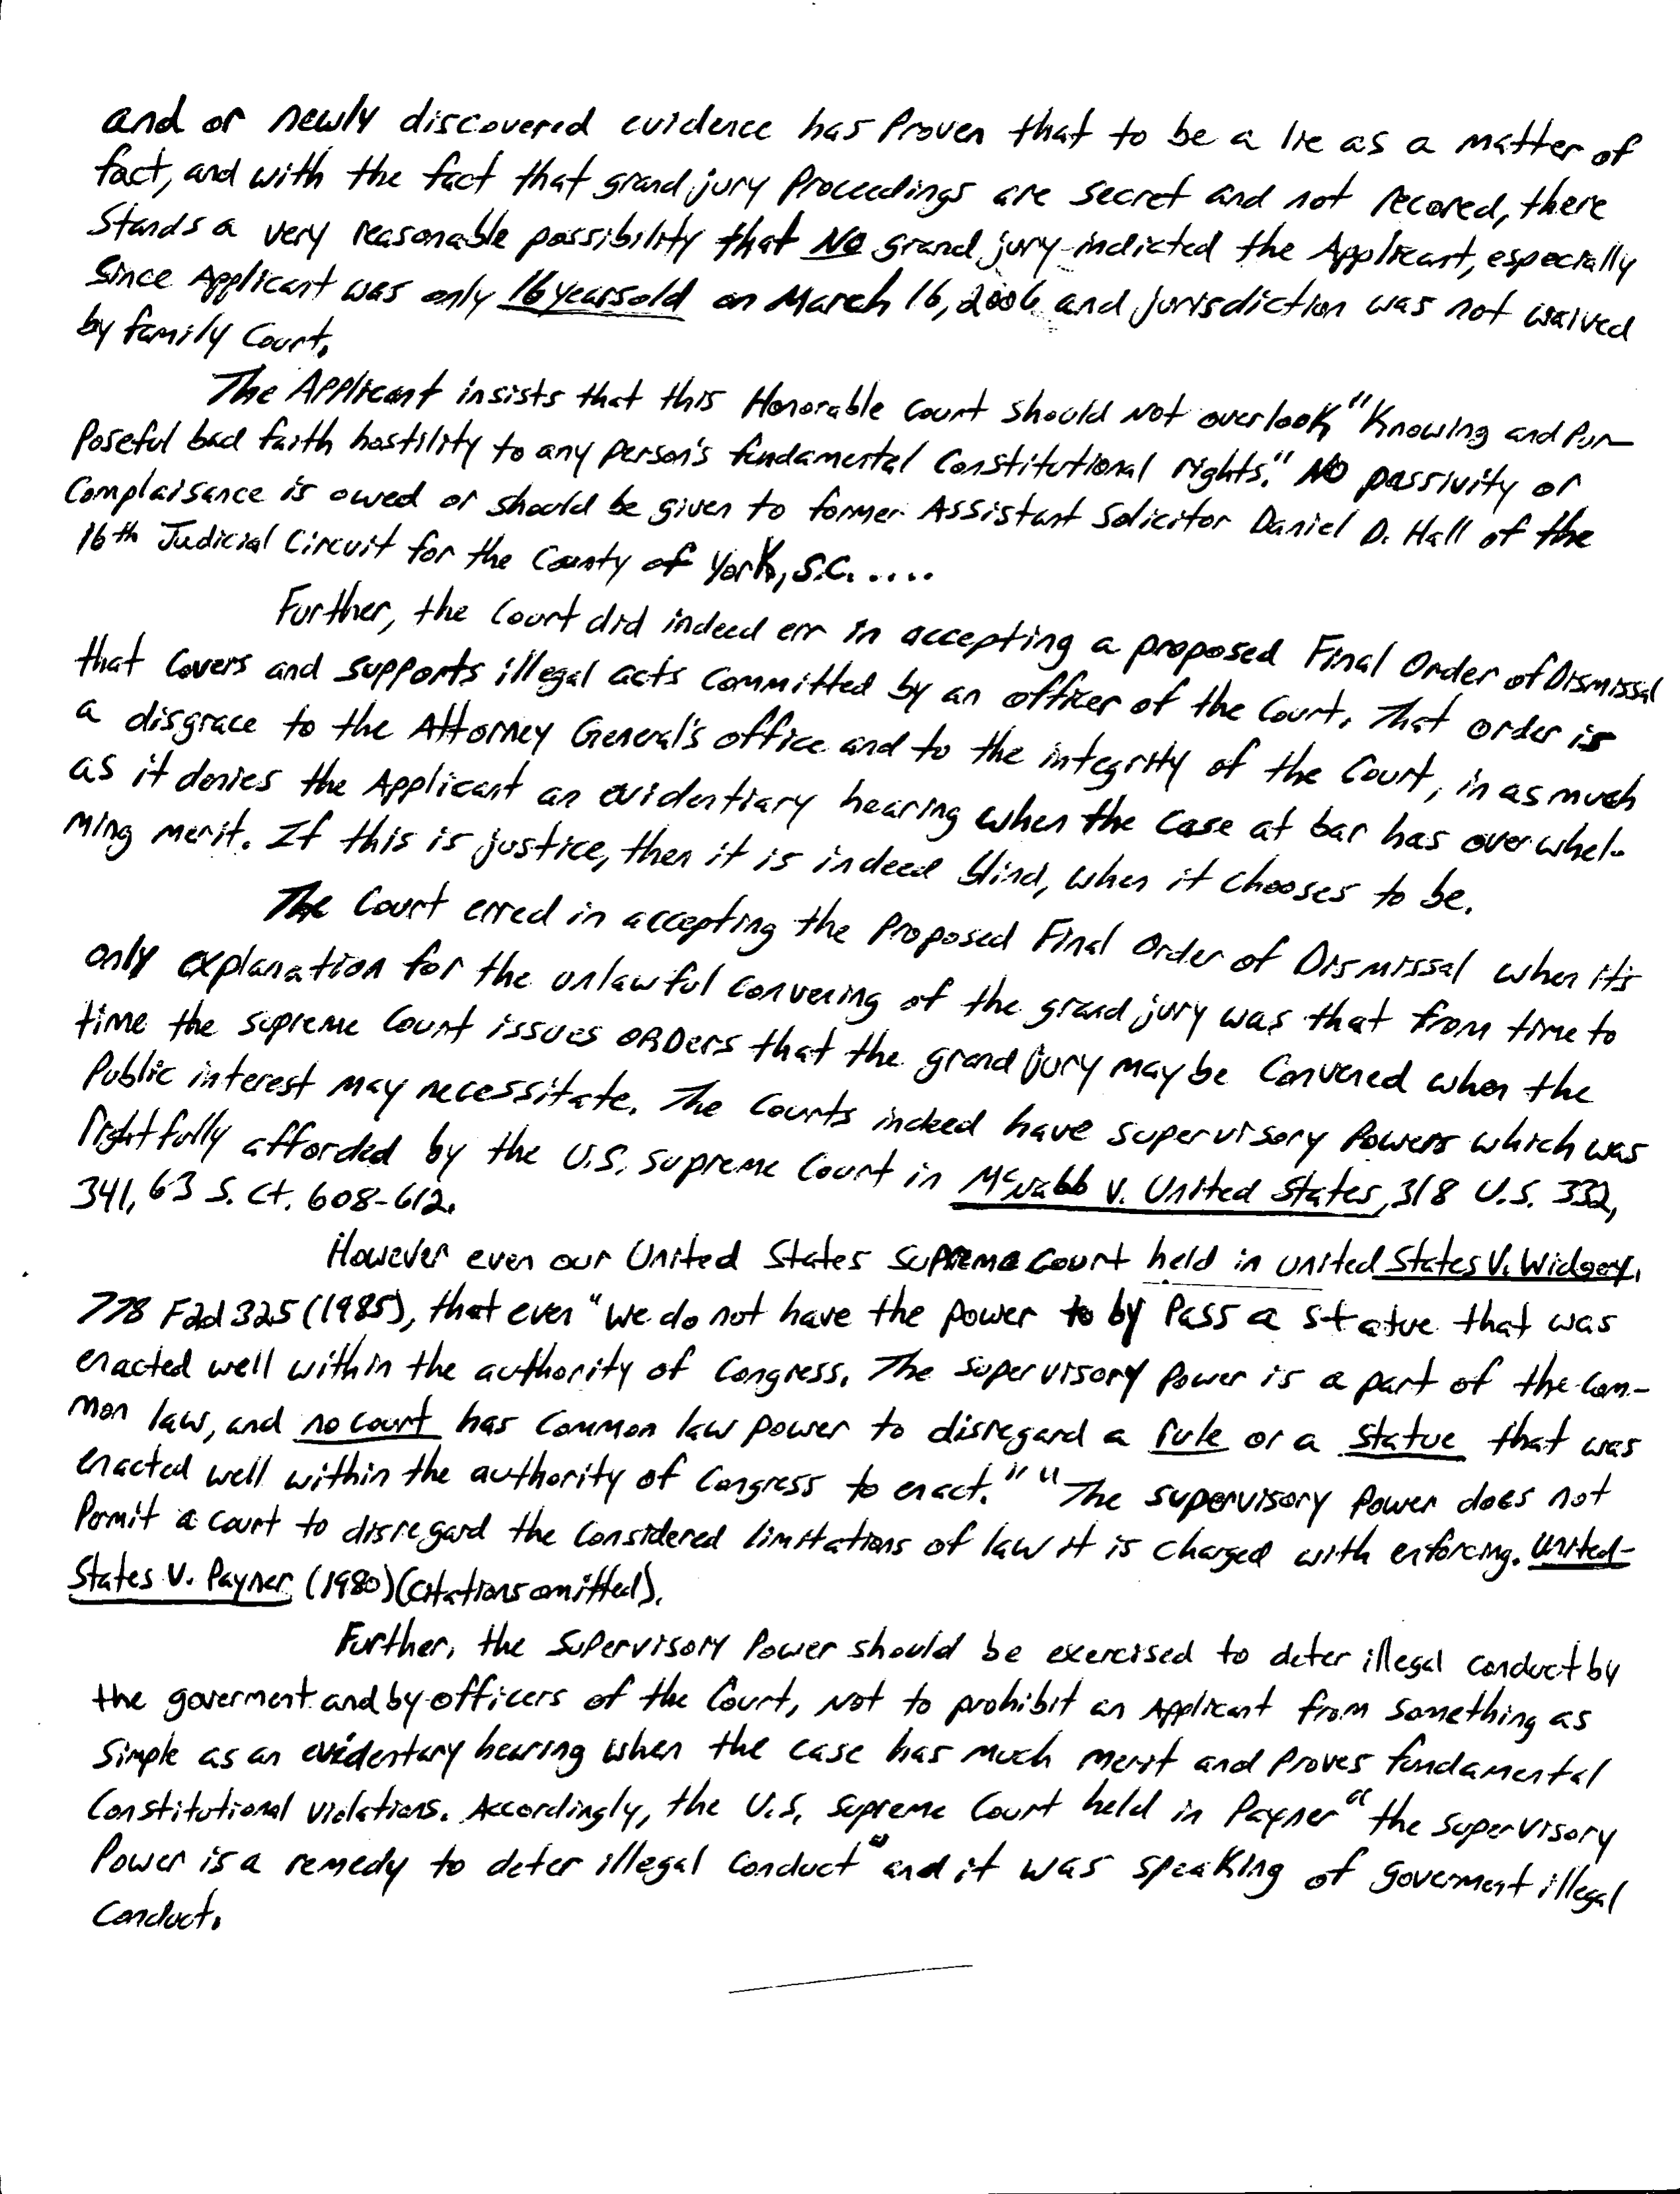 and or newly discovered evidence has Proven that to be a lie as a matter of
fact, and with the fact that grand jury Proceedings are secret and not recored, there
Stands a very reasonable possibility that NO grand jury indicted the Applicant, especially
Since Applicant was only 16 years old on March 16, 2006 and jurisdiction was not waived
by family Court.
The Applicant insists that this Honorable Court should Not overlook "Knowing and Pur-
Poseful bad faith hostility to any person's fundamental Constitutional rights." NO passivity or
Complaisance is owed or should be given to former Assistant Solicitor Daniel D. Hall of the
16th Judicial Circuit for the County of York, S.C. ....
Further, the Court did indeed err in accepting a proposed Final Order of Dismissal
that Covers and supports illegal acts Committed by an officer of the Court. That order is
a disgrace to the Attorney General's office and to the integrity of the Court, in as much
as it denies the Applicant an evidentiary hearing when the case at bar has overwhel-
ming merit. If this is justice, then it is indeed blind, when it chooses to be.
The Court erred in accepting the Proposed Final Order of Dismissal when it's
only explanation for the unlawful convening of the grand jury was that from time to
time the supreme Court issues ORDers that the grand jury may be Convened when the
Public interest may necessitate. The Courts indeed have supervisory Powers which was
rightfully afforded by the U.S. Supreme Court in McNabb v. United States, 318 U.S. 332,
341, 63 S. Ct. 608-612.
However even our United States Supreme Court held in united States V. Widgery,
778 F2d 325 (1985), that even "We do not have the power to by Pass a statue that was
enacted well within the authority of Congress. The supervisory Power is a part of the com-
mon law, and no court has common law power to disregard a rule or a statue that was
enacted well within the authority of Congress to enact." "The supervisory Power does not
Permit a court to disregard the considered limitations of law it is charged with enforcing. United-
States V. Payner (1980)(citations omitted).
Further, the Supervisory Power should be exercised to deter illegal conduct by
the goverment and by officers of the Court, Not to prohibit an Applicant from something as
Simple as an evidentary hearing when the case has much merit and Proves fundamental
Constitutional violations. Accordingly, the U.S. Supreme Court held in Payner "the supervisory
Power is a remedy to deter illegal conduct" and it was speaking of goverment illegal
Conduct.